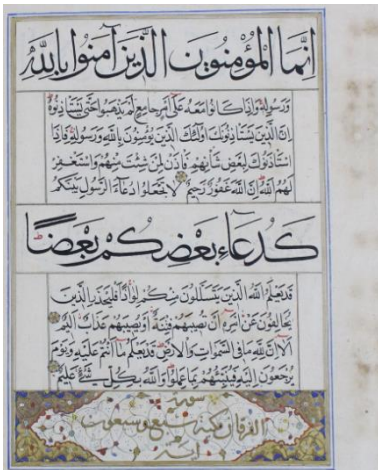 إِنَّمَا الْمُؤْمِنُونَ الَّذِينَ آمَنُوا بِاللَّهِ
وَرَسُولِهِ وَإِذَا كَانُوا مَعَهُ عَلَى أَمْرٍ جَامِعٍ لَمْ يَذْهَبُوا حَتَّى يَسْتَأْذِنُوهُ
إِنَّ الَّذِينَ يَسْتَأْذِنُونَكَ أُولَئِكَ الَّذِينَ يُؤْمِنُونَ بِاللَّهِ وَرَسُولِهِ فَإِذَا
اسْتَأْذَنُوكَ لِبَعْضِ شَأْنِهِمْ فَأْذَنْ لِمَنْ شِئْتَ مِنْهُمْ وَاسْتَغْفِرْ
لَهُمُ اللَّهَ إِنَّ اللَّهَ غَفُورٌ رَحِيمٌ لَا تَجْعَلُوا دُعَاءَ الرَّسُولِ بَيْنَكُمْ
كَدُعَاءِ بَعْضِكُمْ بَعْضًا
قَدْ يَعْلَمُ اللَّهُ الَّذِينَ يَتَسَلَّلُونَ مِنْكُمْ لِوَاذًا فَلْيَحْذَرِ الَّذِينَ
يُخَالِفُونَ عَنْ أَمْرِهِ أَنْ تُصِيبَهُمْ فِتْنَةٌ أَوْ يُصِيبَهُمْ عَذَابٌ أَلِيمٌ
أَلَا إِنَّ لِلَّهِ مَا فِي السَّمَوَاتِ وَالْأَرْضِ قَدْ يَعْلَمُ مَا أَنْتُمْ عَلَيْهِ وَيَوْمَ
يُرْجَعُونَ إِلَيْهِ فَيُنَبِّئُهُمْ بِمَا عَمِلُوا وَاللَّهُ بِكُلِّ شَيْءٍ عَلِيمٌ
سورة
الفرقان مكية سبع وسبعون
آية